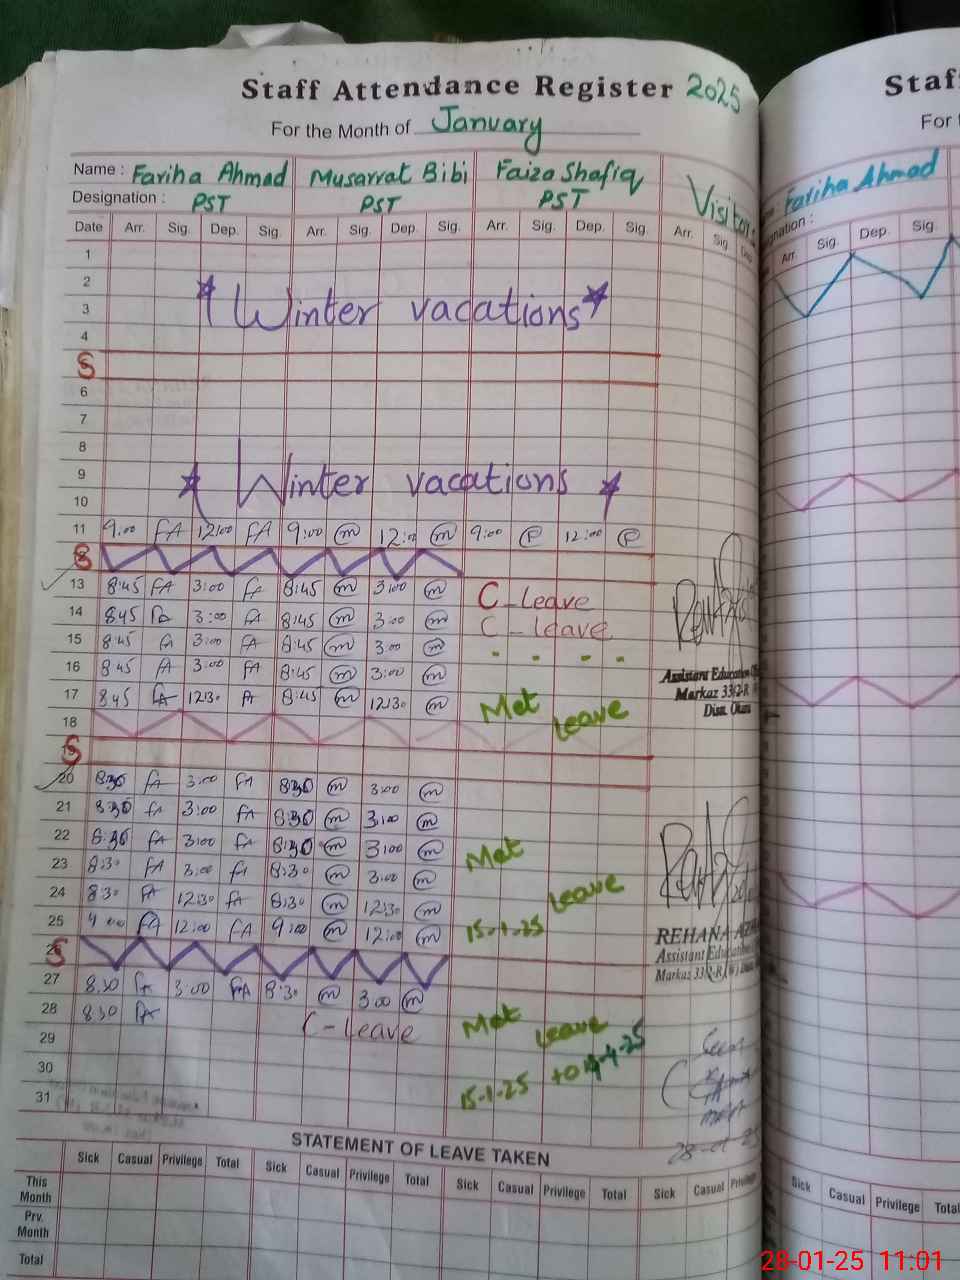 Staff Attendance Register 2025
For the Month of January
Name : Fariha Ahmad Musarrat Bibi Faiza Shafiq
Designation : PST PST PST
Visitors
Date Arr. Sig. Dep. Sig. Arr. Sig. Dep. Sig. Arr. Sig. Dep. Sig. Arr. Sig. Dep
1
2
3 Winter vacations
4
S
6
7
8
9 Winter vacations
10
11 9:00 FA 12:00 FA 9:00 m 12:00 m 9:00 12:00
S
13 8:45 FA 3:00 FA 8:45 m 3:00 m C-leave
14 845 FA 3:00 FA 8:45 m 3:00 m C-leave
15 8:45 FA 3:00 FA 8:45 m 3:00 m
16 8:45 FA 3:00 FA 8:45 m 3:00 m
17 845 FA 1230 FA 8:45 m 12:30 m Met Leave
18
S
20 8:30 FA 3:00 FA 8:30 m 3:00 m
21 8:30 FA 3:00 FA 8:30 m 3:00 m
22 8:30 FA 3:00 FA 8:30 m 3:00 m Met
23 8:30 FA 3:00 FA 8:30 m 3:00 m Leave
24 8:30 FA 12:30 FA 8:30 m 12:30 m
25 FA 12:00 FA 9:00 m 12:00 m 15-1-25
26 S
27 8:30 FA 3:00 FA 8:30 m 3:00 m
28 830 FA C-leave Met Leave
29
30
31 15-1-25 to
Assistant Education
Markaz 33/2-R
Distt. Okara
REHANA
Assistant Education
Markaz 33/2-R (W)
Seen
STATEMENT OF LEAVE TAKEN
Sick Casual Privilege Total Sick Casual Privilege Total Sick Casual Privilege Total Sick Casual
This Month
Prv. Month
Total
Staf
For t
Fariha Ahmad
gnation :
Arr. Sig. Dep. Sig.
Sick Casual Privilege Total
28-01-25 11:01